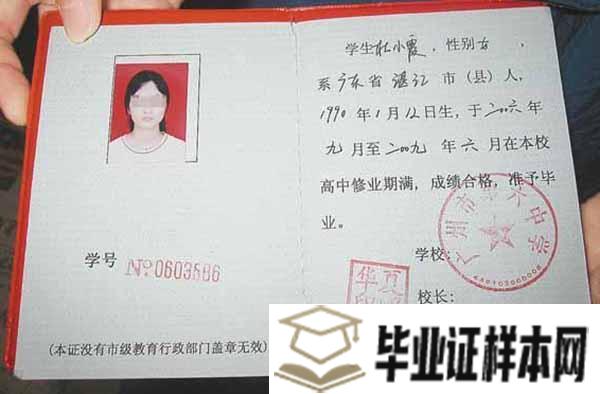 学生杜小霞,性别女,
系广东省湛江市(县)人,
1990年1月12日生,于二00六年
九月至二00九年六月在本校
高中修业期满,成绩合格,准予毕
业。
学号 No 0603586
学校:
广州市第六中学
校长:
夏
华
印
(本证没有市级教育行政部门盖章无效)
毕业证样本网